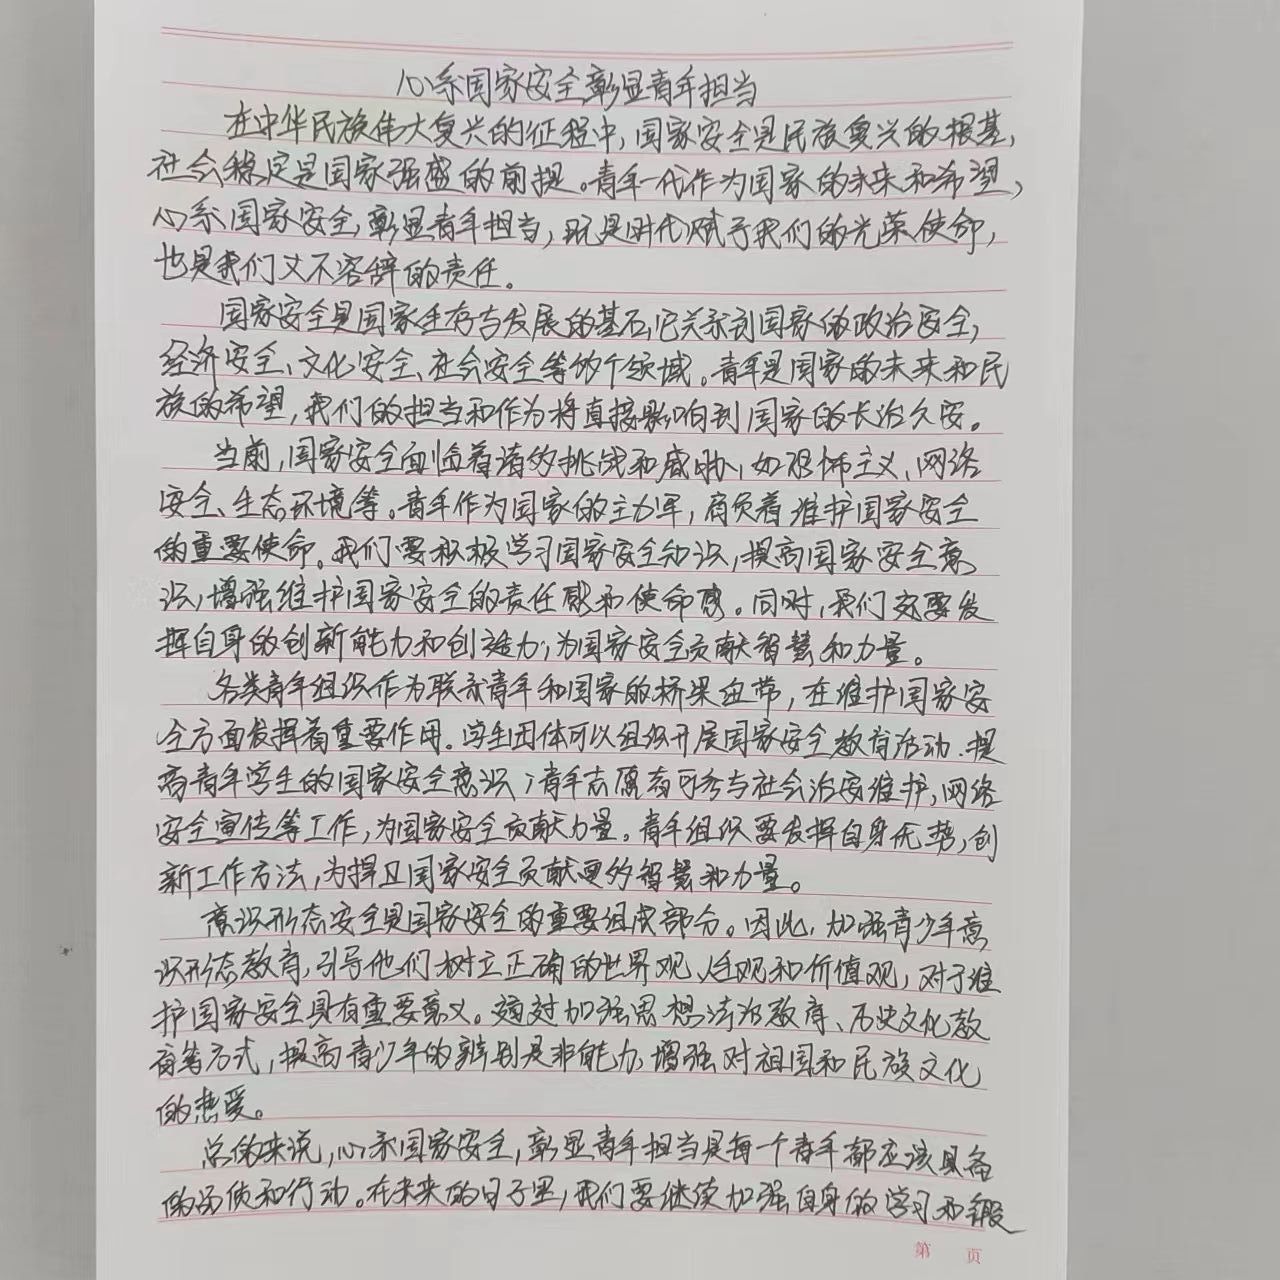 心系国家安全,彰显青年担当
在中华民族伟大复兴的征程中,国家安全是民族复兴的根基,
社会稳定是国家强盛的前提。青年一代作为国家的未来和希望,
心系国家安全,彰显青年担当,既是时代赋予我们的光荣使命,
也是我们义不容辞的责任。
国家安全是国家生存与发展的基石,它关系到国家的政治安全,
经济安全、文化安全、社会安全等的个领域。青年是国家的未来和民
族的希望,我们的担当和作为将直接影响到国家的长治久安。
当前,国家安全面临着诸多挑战和威胁,如恐怖主义、网络
安全、生态环境等。青年作为国家的主力军,肩负着维护国家安全
的重要使命。我们要积极学习国家安全知识,提高国家安全意
识,增强维护国家安全的责任感和使命感。同时,我们还要发
挥自身的创新能力和创造力,为国家安全贡献智慧和力量。
各类青年组织作为联系青年和国家的桥梁纽带,在维护国家安
全方面发挥着重要作用。学生团体可以组织开展国家安全教育活动,提
高青年学生的国家安全意识;青年志愿者可参与社会治安维护,网络
安全宣传等工作,为国家安全贡献力量。青年组织要发挥自身优势,创
新工作方法,为捍卫国家安全贡献更多智慧和力量。
意识形态安全是国家安全的重要组成部分。因此,加强青少年意
识形态教育,引导他们树立正确的世界观、人生观和价值观,对于维
护国家安全具有重要意义。通过加强思想法治教育、历史文化教
育等方式,提高青少年的辨别是非能力,增强对祖国和民族文化
的热爱。
总的来说,心系国家安全,彰显青年担当是每个青年都应该具备
的 和行动。在未来的日子里,我们要继续加强自身的学习和锻
第 页